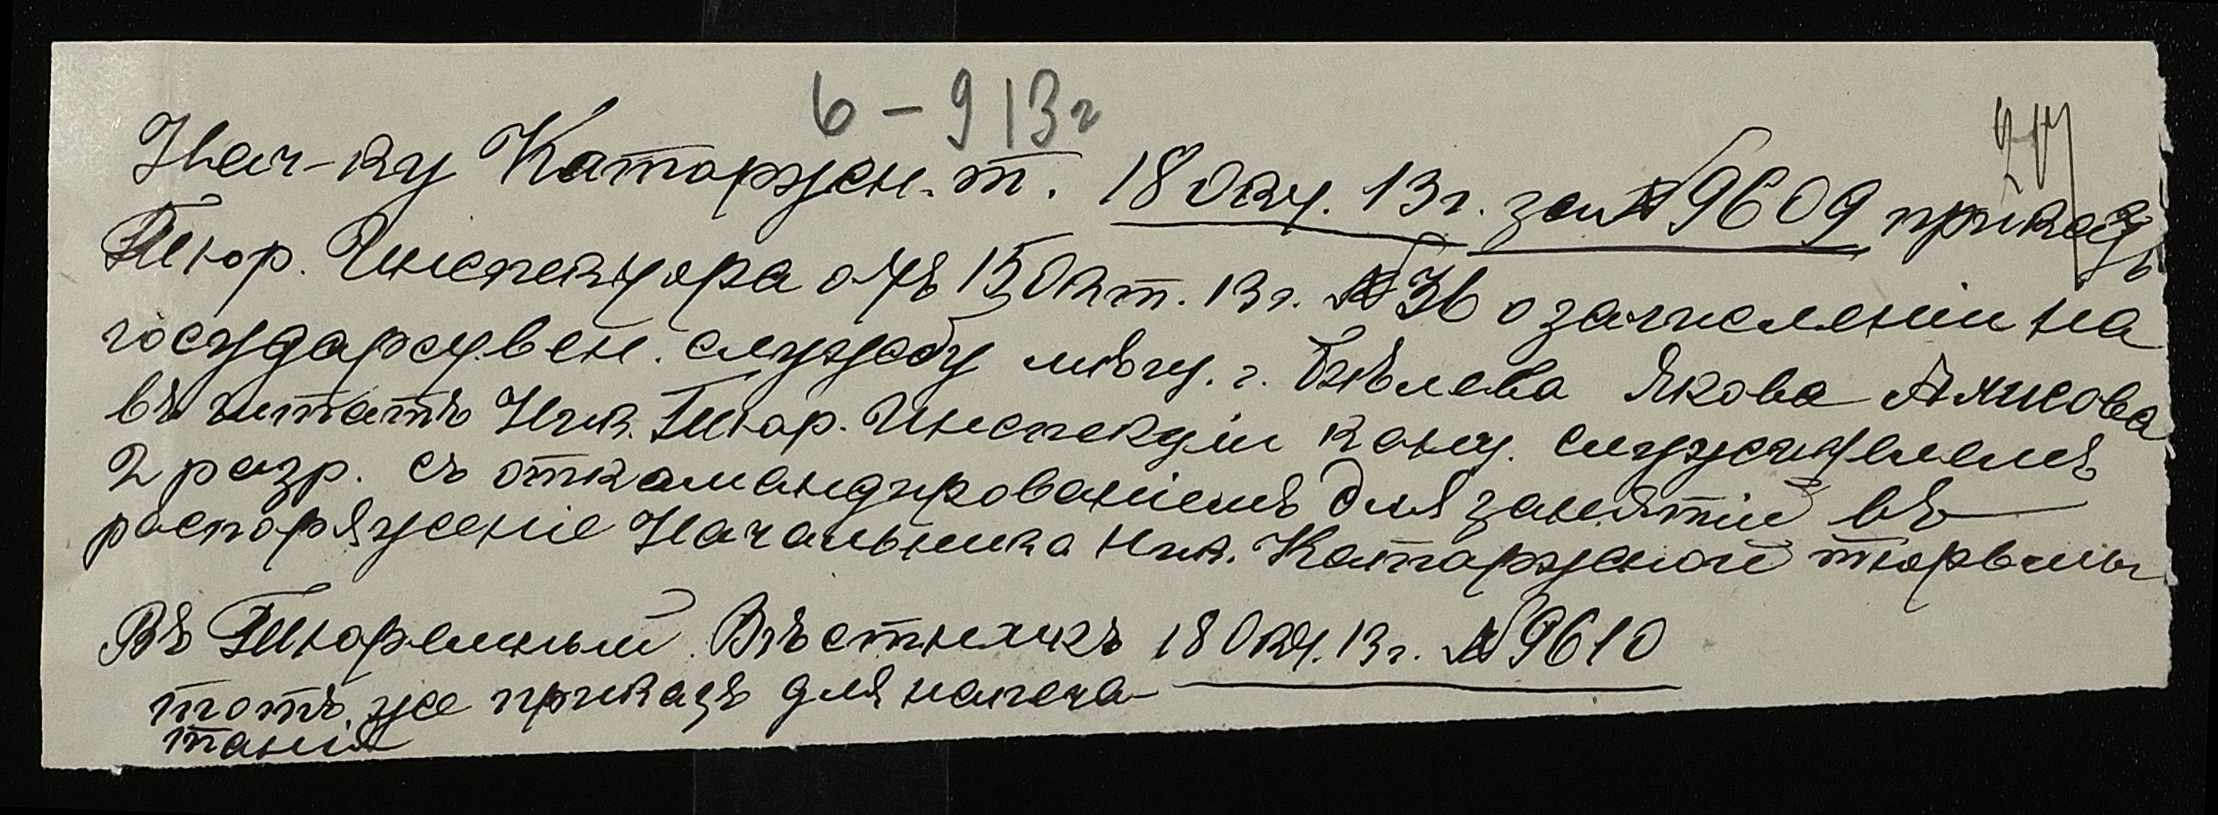 6 – 913г
207
Нач-ку Каторжн. т. 18 Окт. 13 г. за № 9609 приказъ
Тюр. Инспектора отъ 15 Окт. 13 г. № 36 о зачисленіи на
государствен. службу мѣщ. г. Бѣлева Якова Аписова
въ штатъ Ник. Тюр. Инспекціи канц. служителемъ
2 разр. съ откомандированіемъ для занятій въ
распоряженіе Начальника Ник. Каторжной тюрьмы
Въ Тюремный Вѣстникъ 18 Окт. 13 г. № 9610
тотъ же приказъ для напеча-
танія